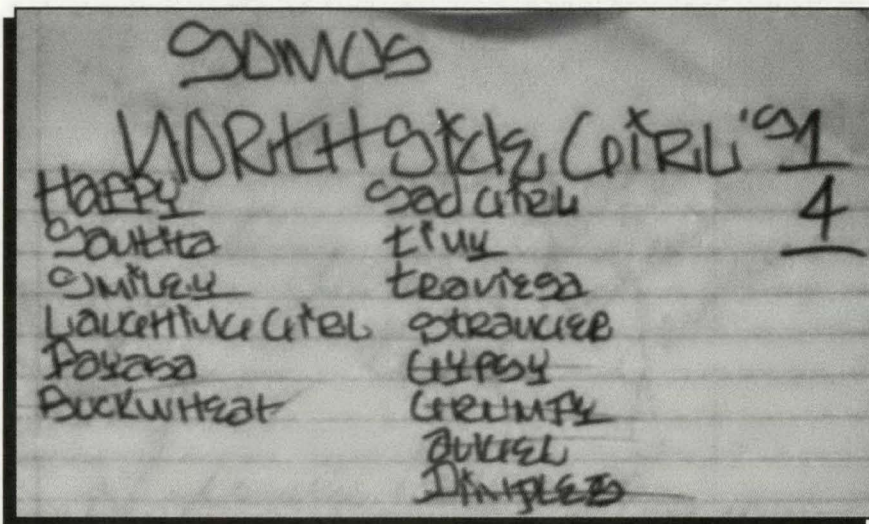 SOMOS
NORtH SidE GiRL'S 1
4
HaPPY
SMiLEY
LaUGHiNG GiRL
PaYasa
BUCKWHEat
Sad GiRL
tiNY
tRaViEsa
StRaNGER
GYPSY
GRUMPY
aNGEL
DiMPLES